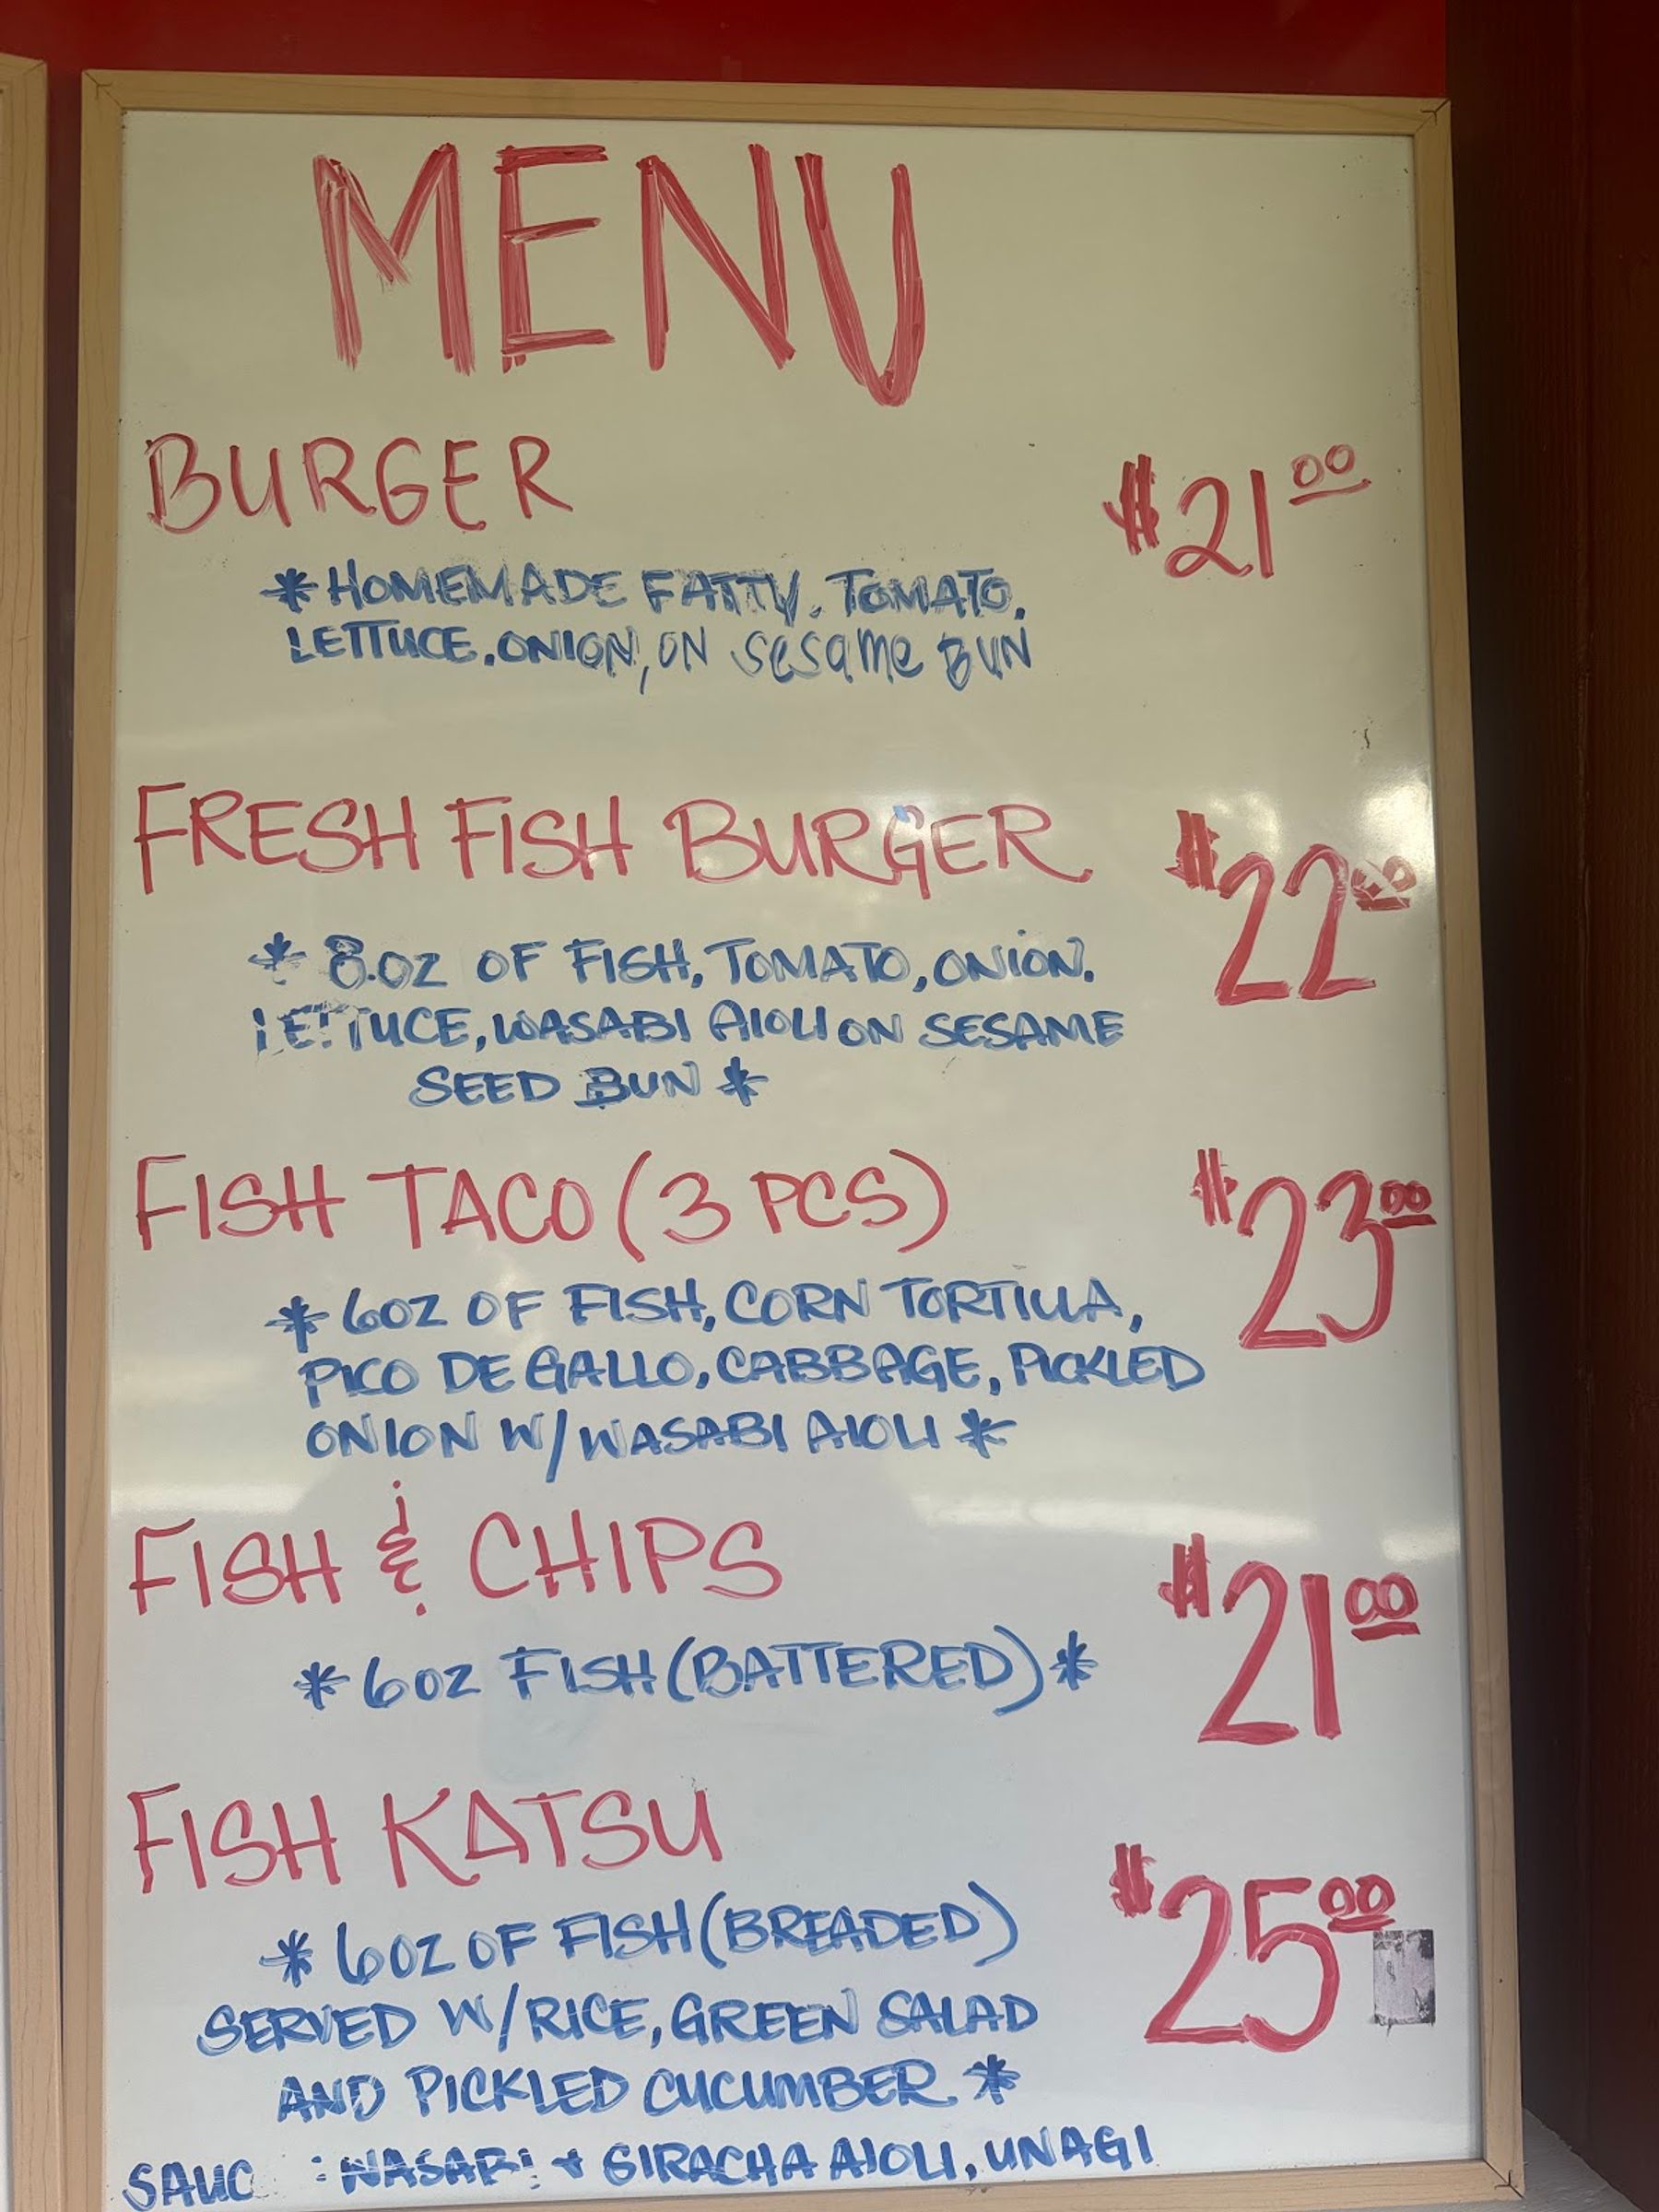 MENU
BURGER $21.00
*HOMEMADE FATTY. TOMATO.
LETTUCE. ONION, ON Sesame BUN
FRESH FISH BURGER $22.00
* 8.OZ OF FISH, TOMATO, ONION.
LETTUCE, WASABI AIOLI ON SESAME
SEED BUN *
FISH TACO (3 PCS) $23.00
* 6OZ OF FISH, CORN TORTILLA,
PICO DE GALLO, CABBAGE, PICKLED
ONION W/WASABI AIOLI *
FISH & CHIPS $21.00
* 6OZ FISH (BATTERED) *
FISH KATSU $25.00
* 6OZ OF FISH (BREADED)
SERVED W/RICE, GREEN SALAD
AND PICKLED CUCUMBER *
SAUC : WASABI + SIRACHA AIOLI, UNAGI